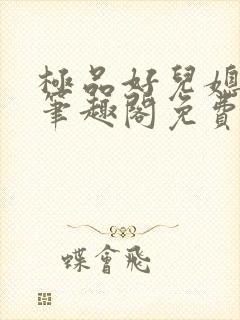 極品好兒媳
筆趣閣免費
蝶會飛